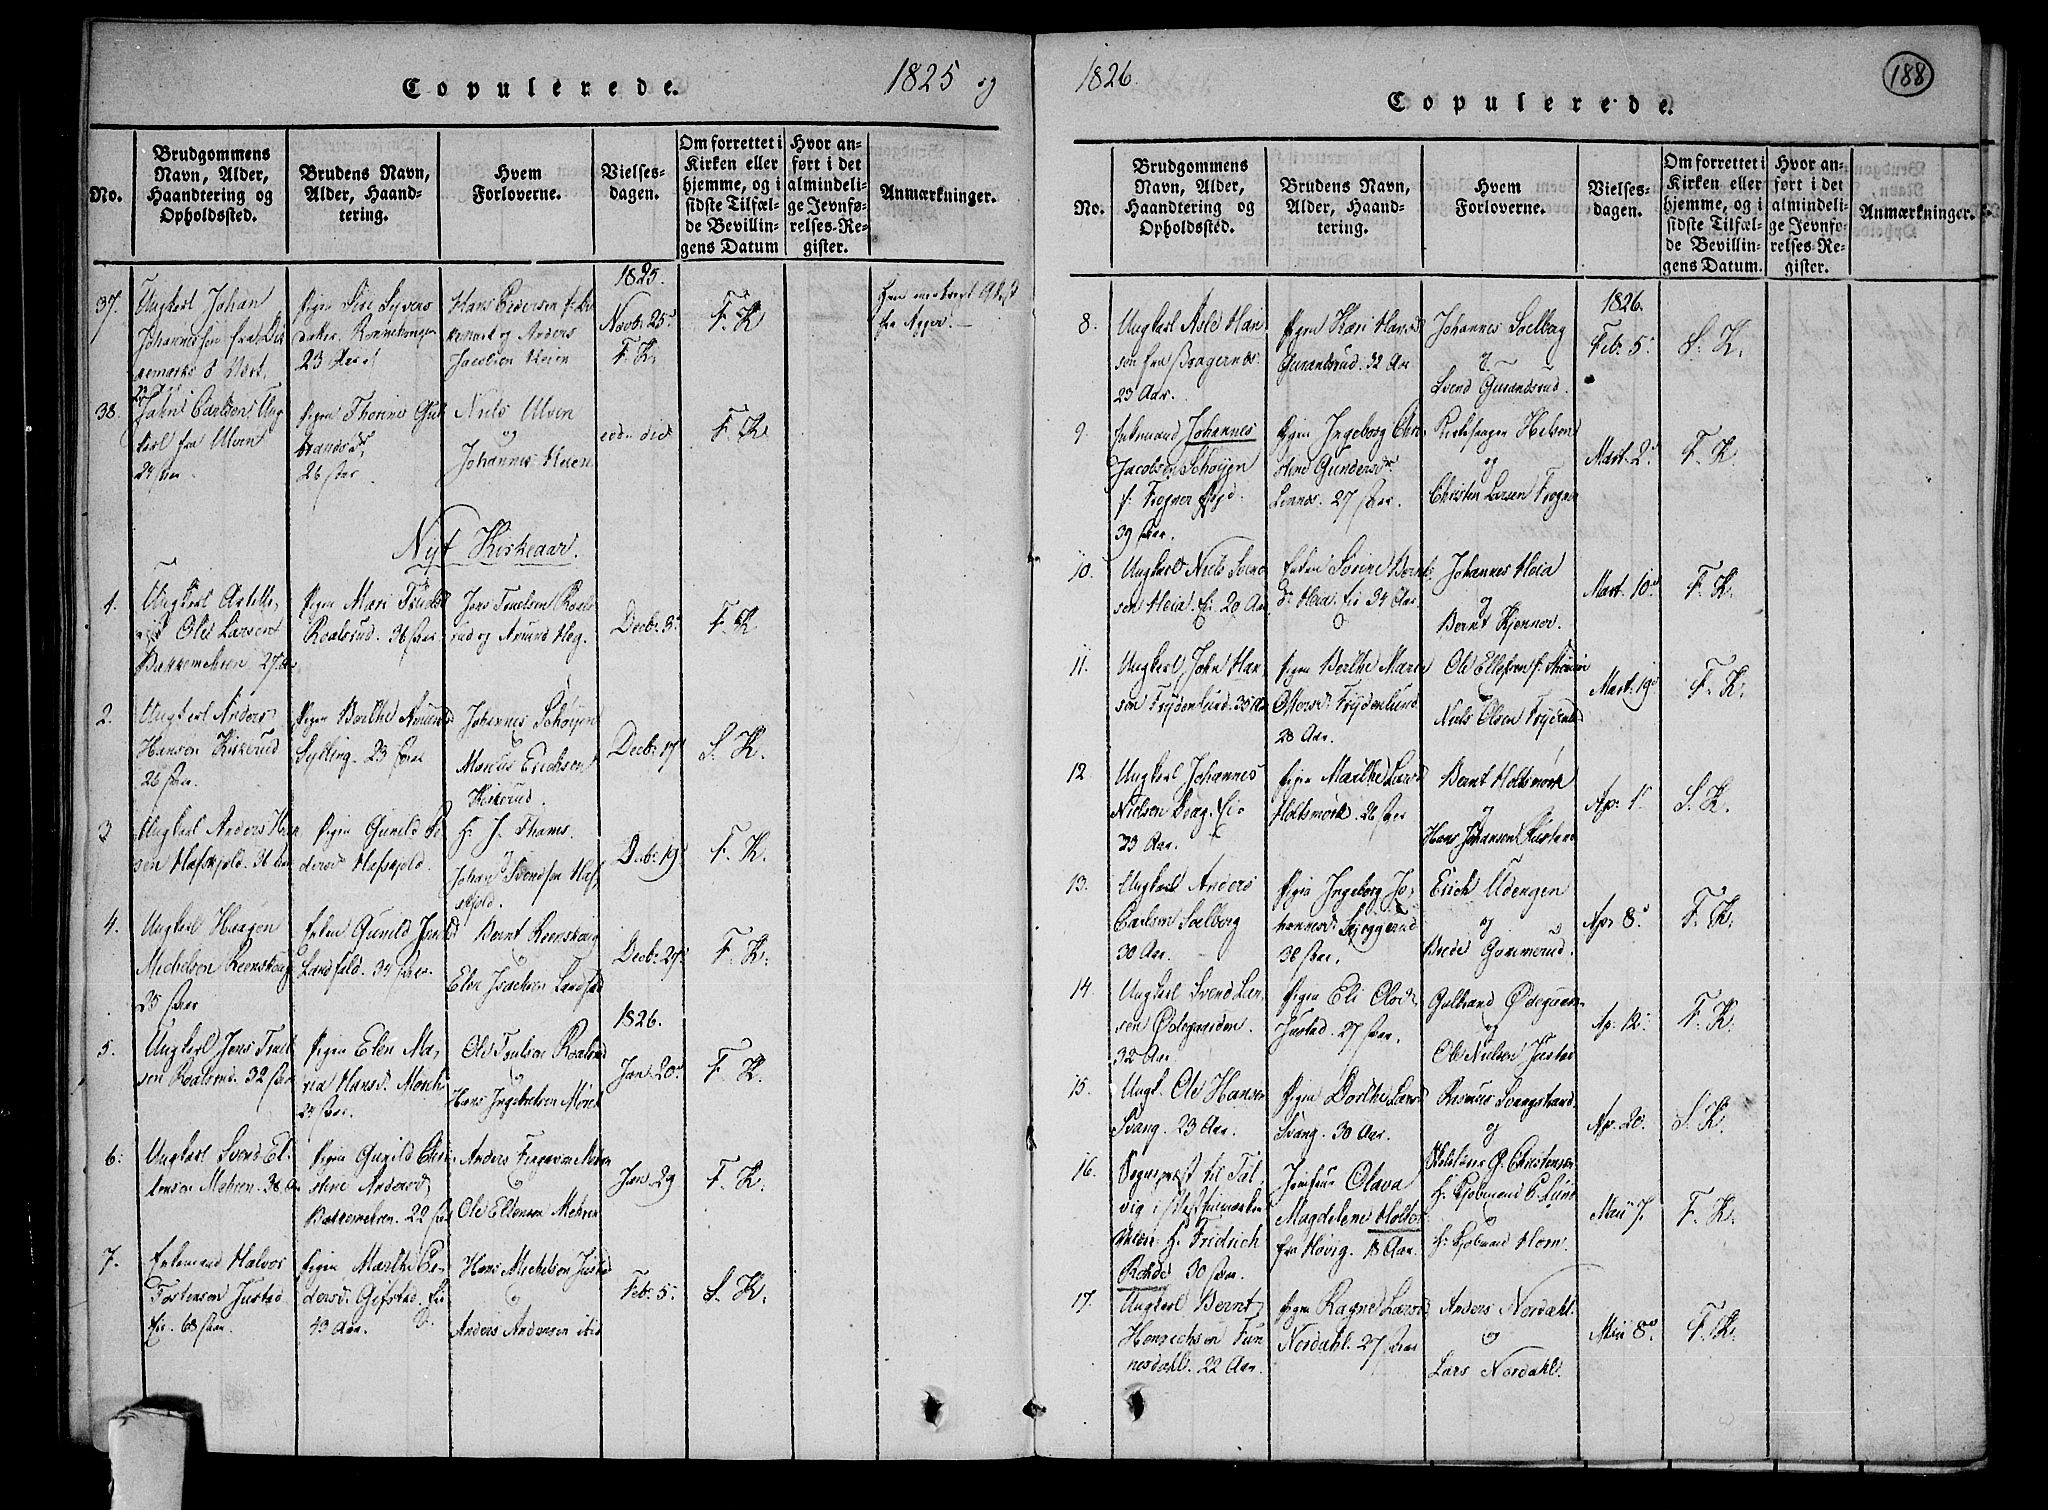 Copulerede.
1825 og
No.
Brudgommens
Navn, Alder,
Haandtering og
Opholdssted.
Brudens Navn,
Alder, Haand-
tering.
Hvem
Forloverne.
Vielses-
dagen.
Om forrettet i
Kirken eller
hjemme, og i
sidste Tilfæl-
de Bevillin-
gens Datum
Hvor an-
ført i det
almindeli-
ge Jevnfø-
relses-Re-
gister.
Anmærkninger.
37.
Ungkarl Johan
Johannesen fra
23 Aar
Hans Pedersen
og Anders
Jacobsen Heien
1825.
Novbr 25
F. K.
F. K.
fra Agger.
38.
John Carlsen Ung
karl fra Ulven
24 Aar
Pigen Thorine Gul
brandsd.
26 Aar
Niels Ulven
og
Johannes Heien
eodem die
F. K.
Nyt Kirkeaar.
1.
Ungkarl
Ole Larsen
Bakkemehren 27 Aar
Pigen Mari Truls
Roalsrud. 36 Aar
Jens Truelsen Roals
rud og Amund Heg.
Decbr. 3
F. K.
2.
Ungkarl Anders
Hansen Kiskerud
26 Aar
Pigen Berthe Amunds
Sylling. 23 Aar
Johannes Schøyen
Marcus Erichsen
Kiskerud.
Decbr. 17
S. K.
3
Ungkarl Anders Han
sen Hafskjold. 31 Aar
Pigen Gunild Pe
dersd. Hafskjold.
Hr. J. Thams.
og
Johan Svendsen Haf
skjold.
Decbr. 19
F. K.
4.
Ungkarl Haagen
Michelsen Reenskoug
25 Aar
Enken Gunild
Landfald. 34 Aar
Bernt Reenskoug
og
Elen Isachsen Landfald
Decbr. 29
F. K.
1826.
5.
Ungkarl Jens Truel
sen Roalsrud. 32 Aar
Pigen Elen Ma-
ria Hansd. Mørch
24 Aar.
Ole Truelsen Roalsrud
og
Hans Ingebretsen Mørch
Jan. 20
F. K.
6.
Ungkarl Svend El-
lensen Mehren. 38 Aar
Pigen Gunild Chri
stine Andersd.
Bakkemehren. 22 Aar
Anders Mehren
og
Ole Ellensen Mehren
Jan. 29
F. K.
7.
Enkemand Halvor
Torstensen Justad
Eie. 68 Aar.
Pigen Marthe Pe-
dersd. Gifstad. Eie
43 Aar.
Hans Michelsen Justad
og
Anders Andersen ibid
Febr. 5.
S. K.
1826.
188
Copulerede.
No.
Brudgommens
Navn, Alder,
Haandtering og
Opholdssted.
Brudens Navn,
Alder, Haand-
tering.
Hvem
Forloverne.
Vielses-
dagen.
Om forrettet i
Kirken eller
hjemme, og i
sidste Tilfæl-
de Bevillin-
gens Datum.
Hvor an-
ført i det
almindeli-
ge Jevnfø-
relses-Re-
gister.
Anmærkninger.
8.
Ungkarl Asle Han
sen fra Bragernæs.
23 Aar.
Pigen Kari Hansd
Gurandsrud. 32 Aar
Johannes Soelberg
og
Svend Gurandsrud.
1826.
Febr. 5
S. K.
9.
Enkemand Johannes
Jacobsen Schøyen
f. Frogner
39 Aar.
Pigen Ingeborg Chri
stine Gundersd
Linnes. 27 Aar.
Kirkesanger Hilsen
og
Christen Larsen Frogner
Mart. 2
F. K.
10.
Ungkarl Niels Svend
sen Heia. Ei. 20 Aar
Enken Sørine Bernts
d. Heia. Eie 34 Aar
Johannes Heia
og
Bernt Kjenner.
Mart. 10
F. K.
11.
Ungkarl John Han-
sen Frydenlund. 35 Aar
Pigen Berthe Marie
Ottersd. Frydenlund
28 Aar.
Ole Ellefsen
Niels Olsen Frydenlund
Mart. 19
F. K.
12.
Ungkarl Johannes
Nielsen Eie
33 Aar.
Pigen Marthe Larsd
Holtsmark. 26 Aar
Bernt Holtsmark
og
Hans Johansen
Apr. 1
S. K.
13.
Ungkarl Anders
Carlsen Soelberg
30 Aar.
Pigen Ingeborg Jo-
hannesd. Skjeggerud
38 Aar.
Erich Udengen
og
Brede Gommerud.
Apr 8
F. K.
14.
Ungkarl Svend Lar-
sen Ødegaarden.
32 Aar.
Pigen Eli Olsd
Justad. 27 Aar.
Gulbrand Ødegaarden
og
Ole Nielsen Justad
Ap. 12
F. K.
15.
Ungk. Ole Hansen
Svang. 23 Aar.
Pigen Dorthe Larsd
Svang. 30 Aar.
Rasmus Svangstrand.
og
Christensen
Ap. 20.
S. K.
16.
Sogneprest til Tal-
vig i Vestfinmarken
Hr. Fridrich
Rohde 30 Aar.
Jomfrue Olava
Magdelene Holter
fra Høvig. 18 Aar.
Hr. E. Lund
og
Hr. Horn.
Maii 7.
F. K.
17.
Ungkarl Bernt
Henrichsen Tun-
nesdahl. 22 Aar.
Pigen Ragne Larsd
Nordahl. 27 Aar
Anders Nordahl.
og
Lars Nordahl.
Maii 8
F. K.